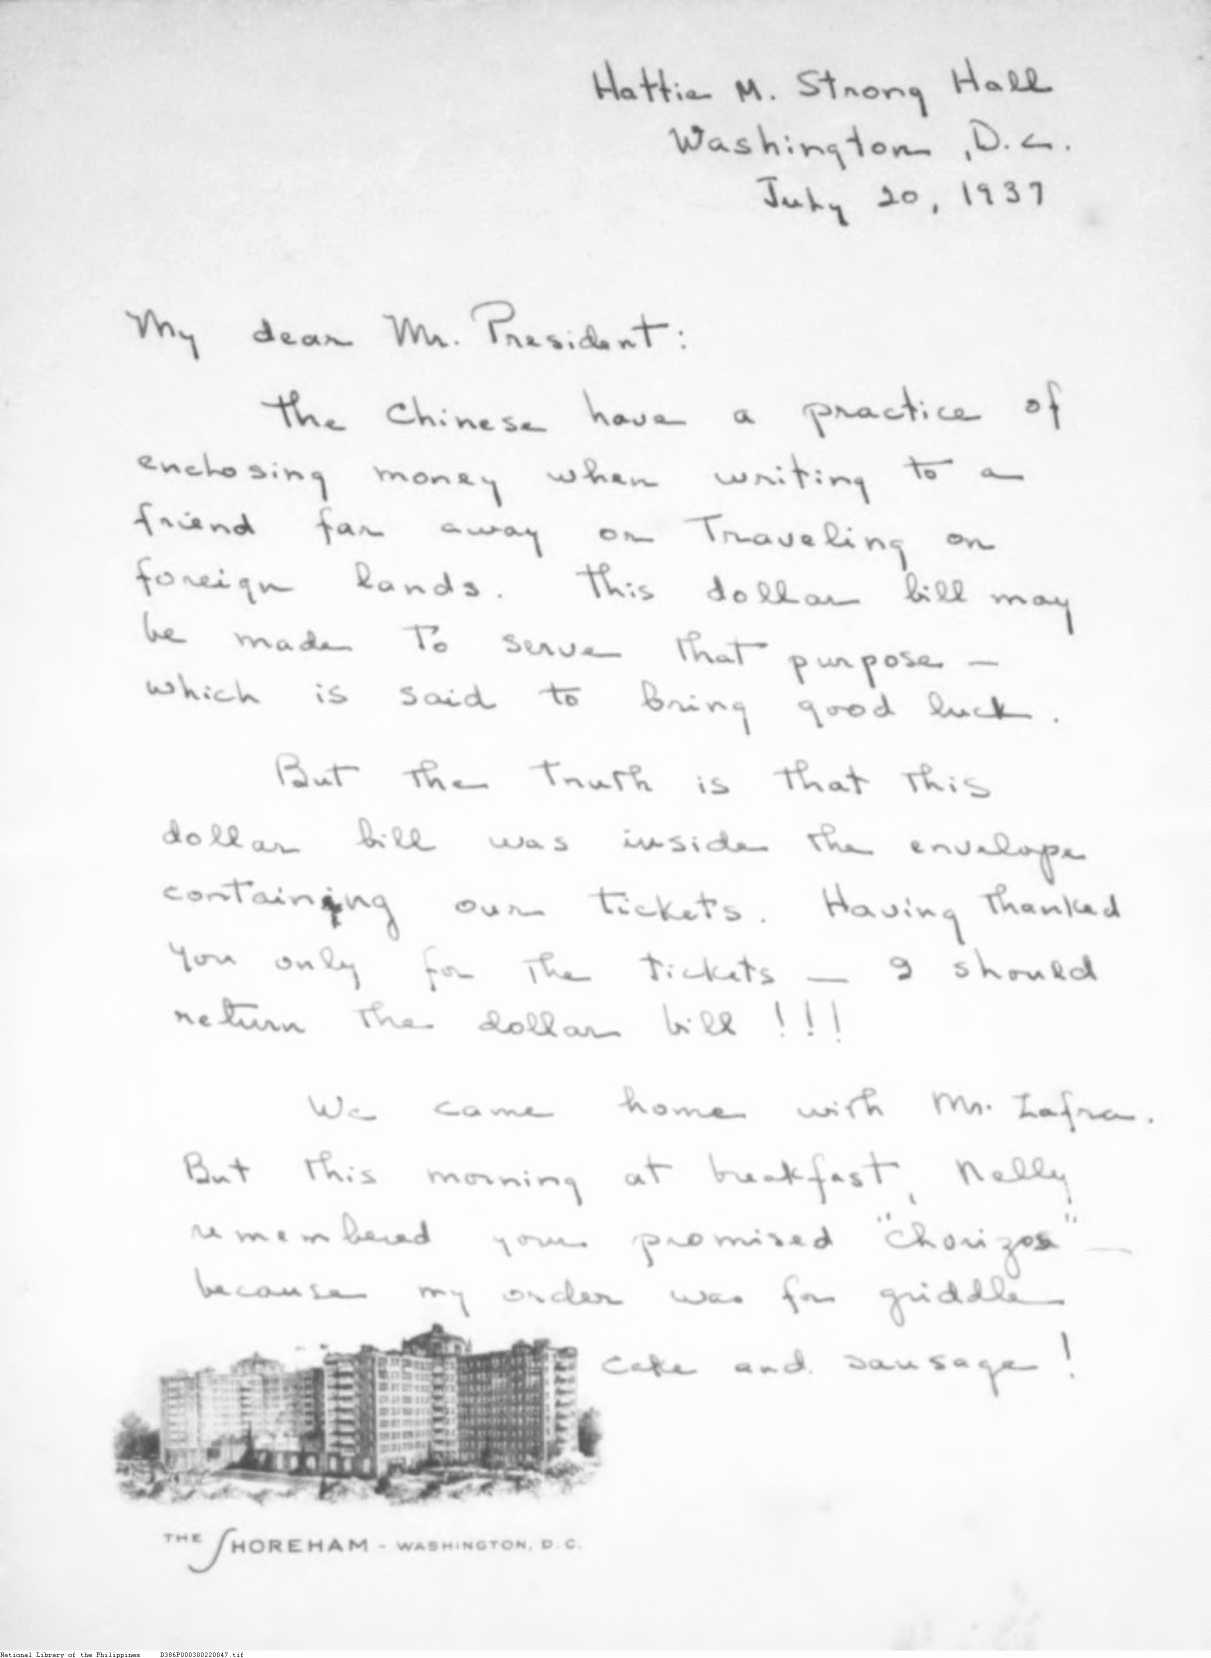 Hattie M. Strong Hall
Washington, D.C.
July 20, 1937
My dear Mr. President:
The Chinese have a practice of
enclosing money when writing to a
friend far away or traveling on
foreign lands. This dollar bill may
be made to serve that purpose —
which is said to bring good luck.
But the truth is that this
dollar bill was inside the envelope
containing our tickets. Having thanked
you only for the tickets — I should
return the dollar bill!!!
We came home with Mr. Zafra.
But this morning at breakfast, Nelly
remembered your promised "chorizos" —
because my order was for griddle
cake and sausage!
THE SHOREHAM - WASHINGTON, D.C.
National Library of the Philippines D386P000380220047.tif